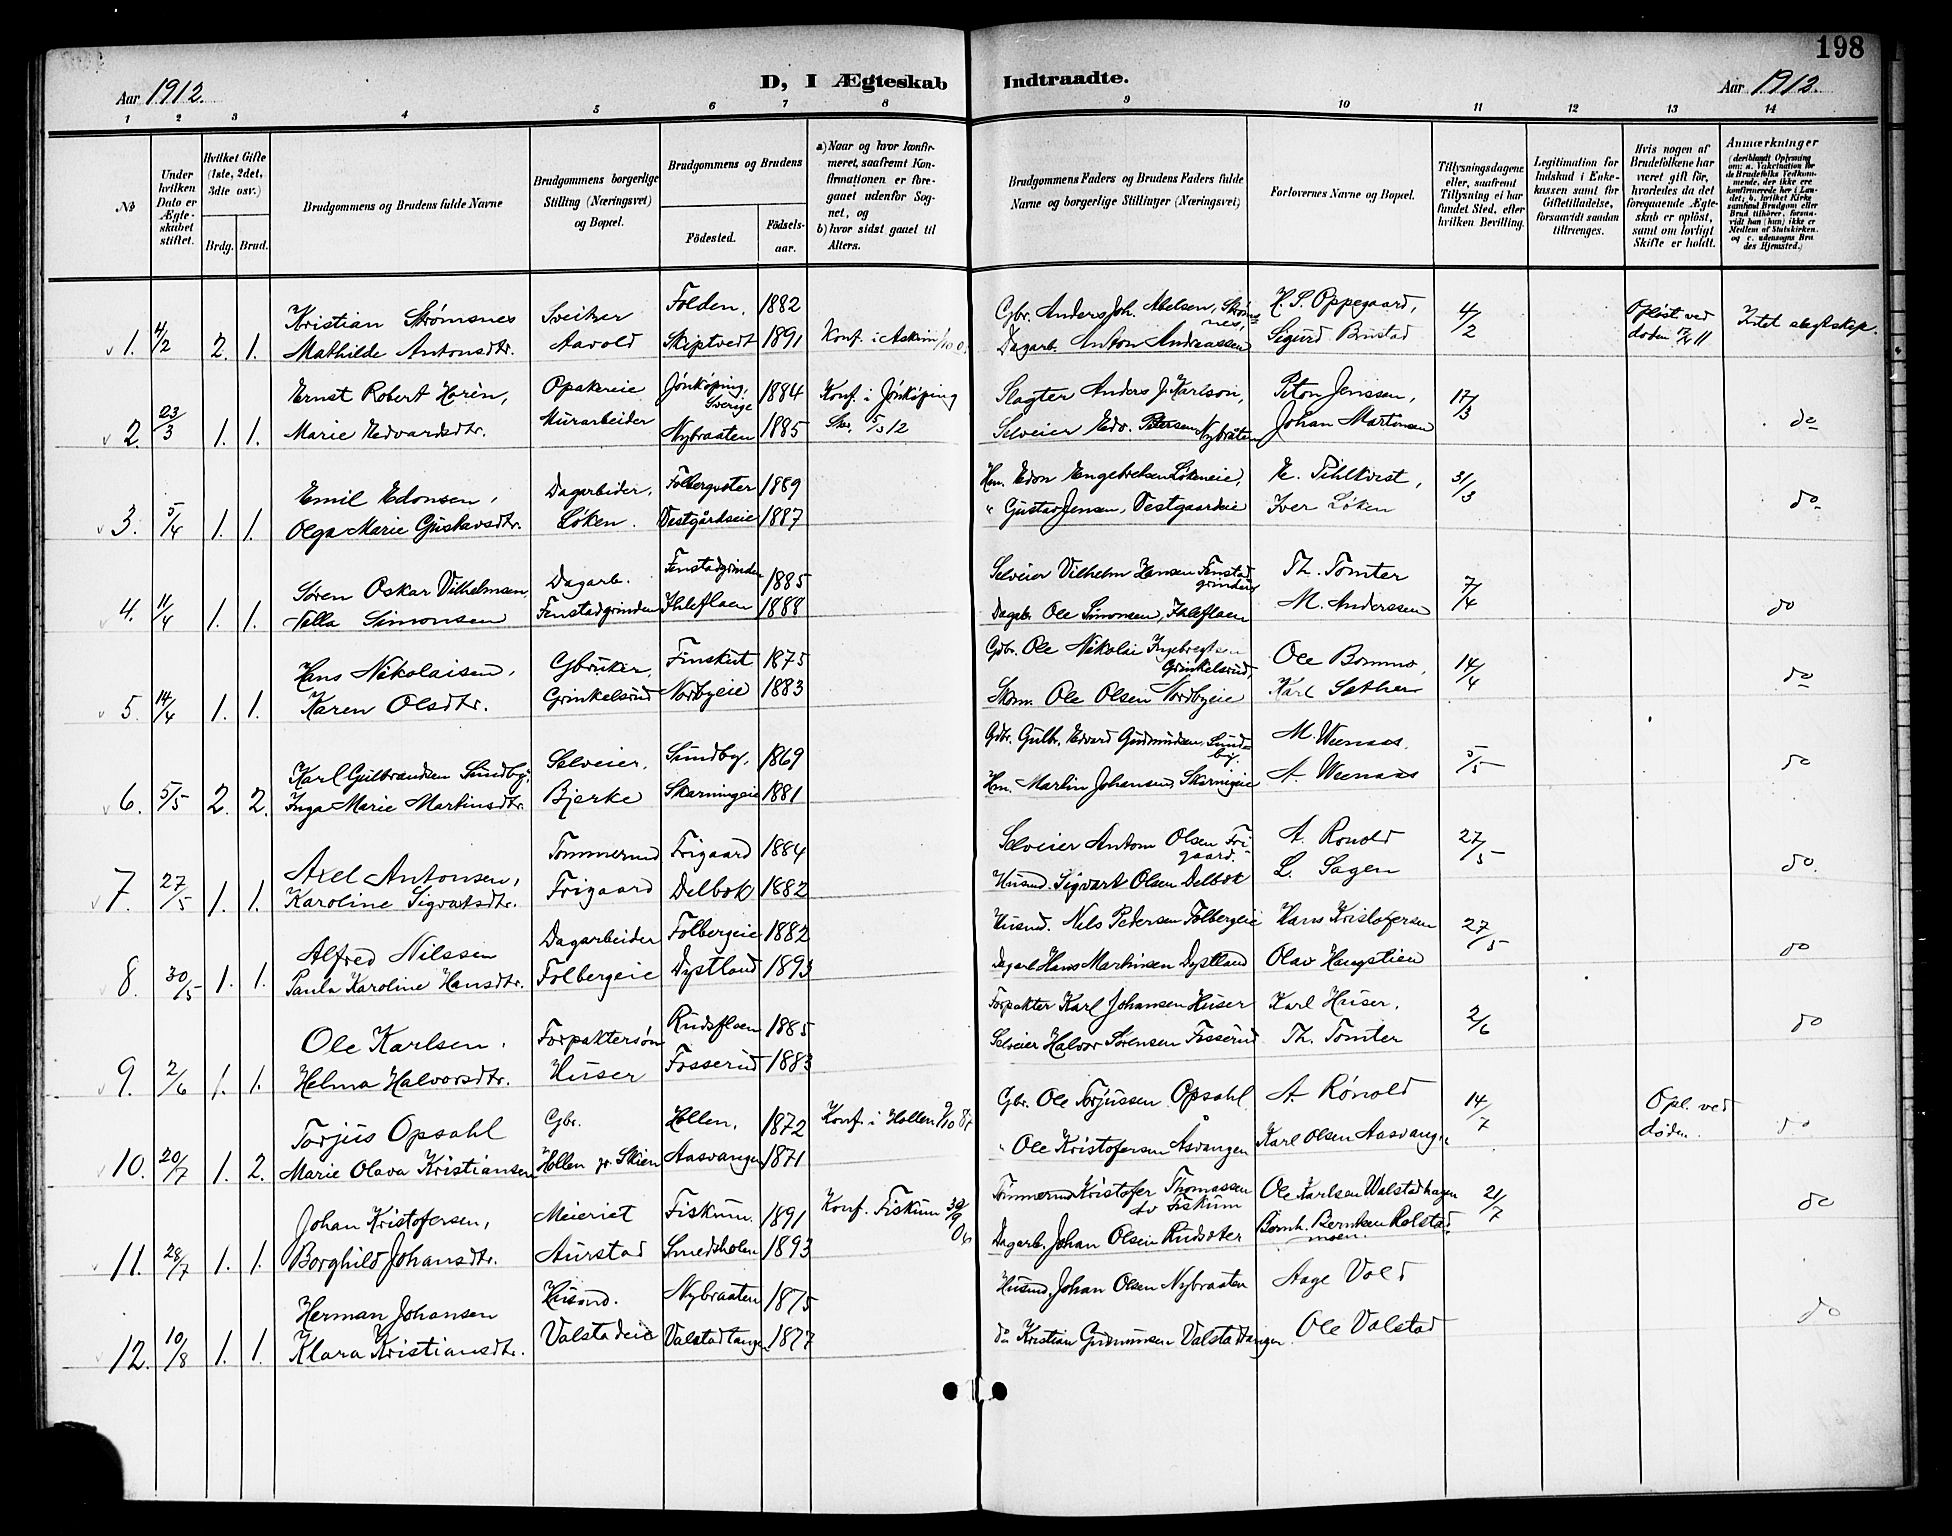 198
Aar 1912.
D, I Ægteskab
Indtraadte.
Aar 1912.
1 2 3 4 5 6 7 8 9 10 11 12 13 14
No
Under hvilken Dato er Ægteskabet stiftet.
Hvilket Gifte (1ste, 2det, 3die osv.)
Brdg. Brud.
Brudgommens og Brudens fulde Navne
Brudgommens borgerlige Stilling (Næringsvei) og Bopæl.
Brudgommens og Brudens
Fødested. Fødselsaar.
a) Naar og hvor konfirmeret, saafremt Konfirmationen er foregaaet udenfor Sognet, og
b) hvor sidst gaaet til Alters.
Brudgommens Faders og Brudens Faders fulde Navne og borgerlige Stillinger (Næringsvei)
Forlovernes Navne og Bopæl.
Tillysningsdagene eller, saafremt Tillysning ei har fundet Sted, efter hvilken Bevilling.
Legitimation for Indskud i Enkekassen samt for Giftetilladelse, forsaavidt saadan tiltrænges.
Hvis nogen af Brudefolkene har været gift før, hvorledes da det foregaaende Ægteskab er opløst, samt om lovligt Skifte er holdt.
Anmærkninger
(deriblandt Oplysning om: a. Vaksination for de Brudefolks Vedkommende, der ikke ere konfirmerede her i Landet; b. hvilket Kirkesamfund Brudgom eller Brud tilhører, forsaavidt han (hun) ikke er Medlem af Statskirken, og c. udensogns Brudes Hjemsted.)
Kristian Strømsnes Sveitser Folden, 1882 Gbr. Anders Joh. Abelsen, Strømsnes, H. S. Oppegaard, 4/2 Opløst ved Intet slegtskap.
1. 4/2 2. 1. Mathilde Antonsdtr. Aavold Skiptvedt 1891 Konf. i Askim Dagarb. Anton Andreassen Sigurd Bunstad døden 11
Ernst Robert Horén, Opakereie Jönköping, Sverige 1884 Konf. i Jönköping Slagter Anders J. Karlson, Peton Jenssen, 17/3
2. 23/3 1. 1. Marie Edvardsdtr. Murarbeider Nybraaten 1885 5/3 12 Selveier Edv. Petersen Nybråten Johan Martinsen do
Emil Edonsen, Dagarbeider, Folbergseter 1889 Hm. Edon Engebretsen Løkeneie, E. Pihlkvist, 31/3
3. 5/4 1. 1. Olga Marie Gustavsdtr. Løken. Vestgårdseie 1887 " Gustav Jensen, Vestgaardeie Iver Løken do
Søren Oskar Vilhelmsen, Dagarb. Fenstadgrinden 1885 Selveier Vilhelm Hansen Fenstadgrinden Th. Tomter 7/4
4. 11/4 1. 1. Valla Simonsen Fenstadgrinden Ihleflaen 1888 Dagarb. Ole Simonsen, Ihleflaen M. Anderssen do
Hans Nikolaisen, Gbruker, Finskut 1875 Gdbr. Ole Nikolai Ingebregtsen Grinkelsrud, Ole Bommo, 14/4
5. 14/4 1. 1. Karen Olsdtr. Grinkelsrud Nordbyeie 1883 Skom. Ole Olsen Nordbyeie Karl Sæther do
Karl Gulbrandsen Sundby, Selveier, Sundby, 1869 Gdbr. Gulb. Edvard Gudmundsen, Sundby, M. Weenaas. 5/5
6. 5/5 2. 2. Inga Marie Martinsdtr. Bjerke Skarningeie 1881 Hm. Martin Johansen, Skarnigeie A. Weenaas do
Axel Antonsen, Tømmermd Frigaard 1884 Selveier Anton Olsen Frigaard. A. Ronold 27/5
7. 27/5 1. 1. Karoline Sigvartsdtr. Frigaard Delbok 1882 Husmd. Sigvart Olsen Delbok L. Sagen do.
Alfred Nilssen Dagarbeider Folbergeie 1882 Husmd. Nils Pedersen Folbergeie Hans Kristofersen 27/5
8. 30/5 1. 1. Paula Karoline Hansdtr. Folbergeie Dystland 1893 Dagarb. Hans Martinsen Dystland Olav Haugstien do
Ole Karlsen, Forpaktersøn Rudsflaen 1885 Forpakter Karl Johansen Huser Karl Huser. 2/6
9. 2/6 1. 1. Helma Halvorsdtr. Huser Fosserud 1883 Selveier Halvor Sørensen Fosserud Th. Tomter do
Torjus Opsahl Gbr. Hollen, 1872 Konf. i Hollen Gbr. Ole Torjussen Opsahl A. Rónold 14/7 Opl. ved
10. 20/7 1. 2. Marie Olava Kristiansen Hollen pr. Skien Aasvangen 1871 " Ole Kristofersen Åsvangen Karl Olsen Aasvangen døden. do
Johan Kristofersen, Meieriet Fiskum. 1891 Konf. Fiskum Tømmermd Kristofer Thomassen av Fiskum Ole Karlsen Walstadhagen 21/7
11. 28/7 1. 1. Borghild Johansdtr. Aurstad Smedsholen 1893 Dagarb. Johan Olsen Rudsæter Bernh. Berntsen Rolstadmoen. do
Herman Johansen Husmd. Nybraaten 1875 Husmd. Johan Olsen Nybraaten Aage Vold
12. 10/8 1. 1. Klara Kristiansdtr. Valstadeie Valstadtangen 1877 do Kristian Gudmunsen Valstadtangen Ole Valstad do